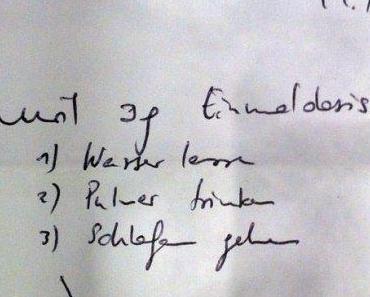 mit 3g Einmaldosis
1) Wasser lassen
2) Pulver trinken
3) Schlafen gehen